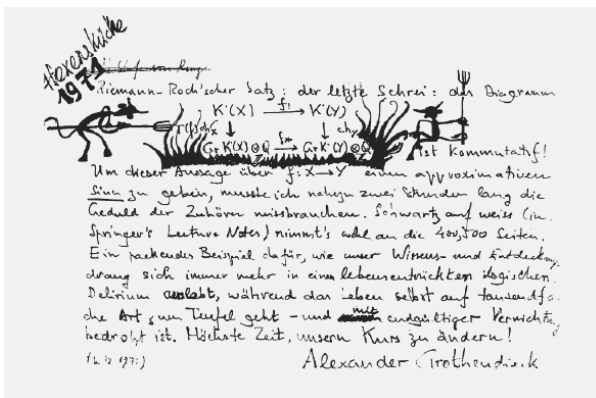 Hexenküche
1971
Riemann-Roch'scher Satz: der letzte Schrei: das Diagramm
K˙(X) f! → K˙(Y)
ch_X ↓ ↓ ch_Y
Gr K˙(X)⊗Q f* → Gr K˙(Y)⊗Q
ist kommutatif!
Um dieser Aussage über f: X→Y einen approximativen
Sinn zu geben, musste ich nahezu zwei Stunden lang die
Geduld der Zuhörer missbrauchen. Schwartz auf weiss (in
Springer's Lecture Notes) nimmt's wohl an die 400, 500 Seiten.
Ein packendes Beispiel dafür, wie unser Wissens- und Entdeckungs-
drang sich immer mehr in einem lebensentrückten logischen
Delirium auslebt, während das Leben selbst auf tausendfa-
che Art zum Teufel geht - und mit endgültiger Vernichtung
bedroht ist. Höchste Zeit, unsern Kurs zu ändern!
Alexander Grothendieck